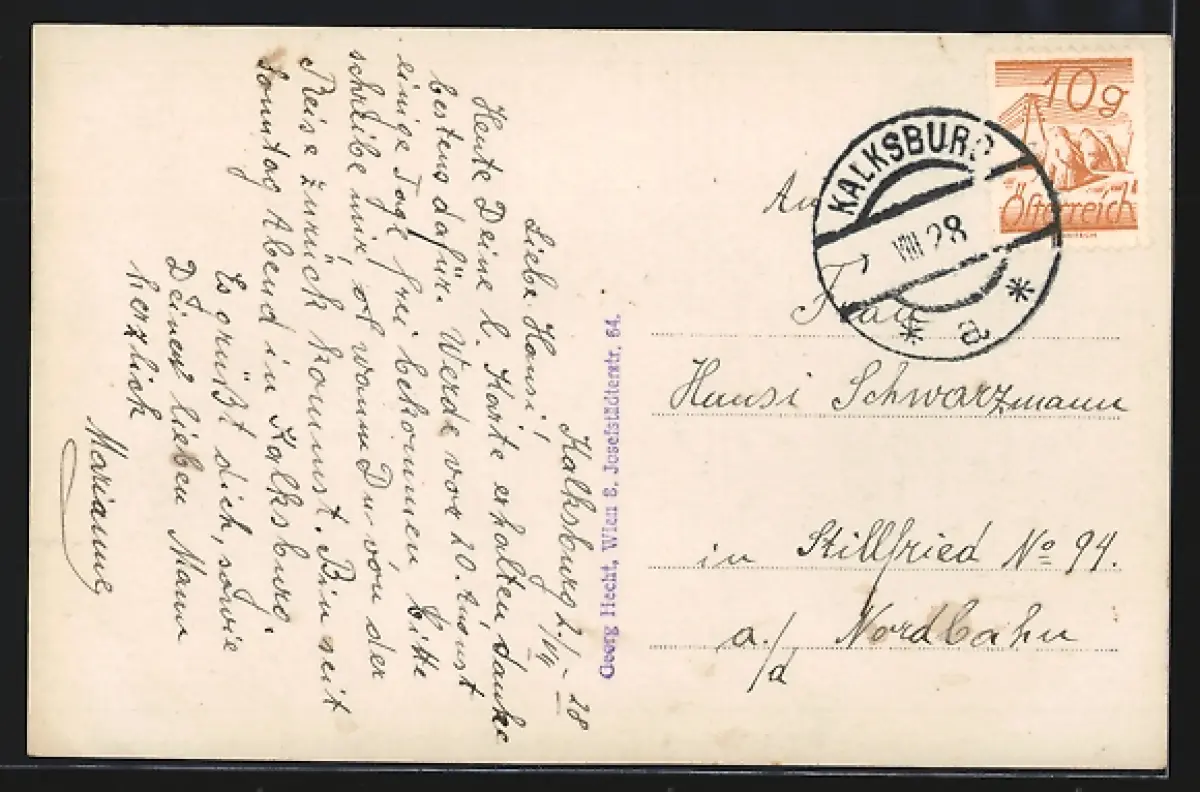 Kalksburg 2./VIII - 28
Liebe Hansi!
Heute Deine l. Karte erhalten danke
bestens dafür. Werde vor 20. August
einige Tage frei bekommen, bitte
schreibe mir ob wann Du von der
Reise zurück kommst. Bin seit
Sonntag Abend in Kalksburg.
Es grüßt dich, sowie
Deinen lieben Mann
herzlich
Marianne
Georg Hecht, Wien 8. Josefstädterstr. 64.
10g
Österreich
KALKSBURG
VIII 28
* a *
An
Frau
Hansi Schwarzmann
in Stillfried No 94.
a./d Nordbahn